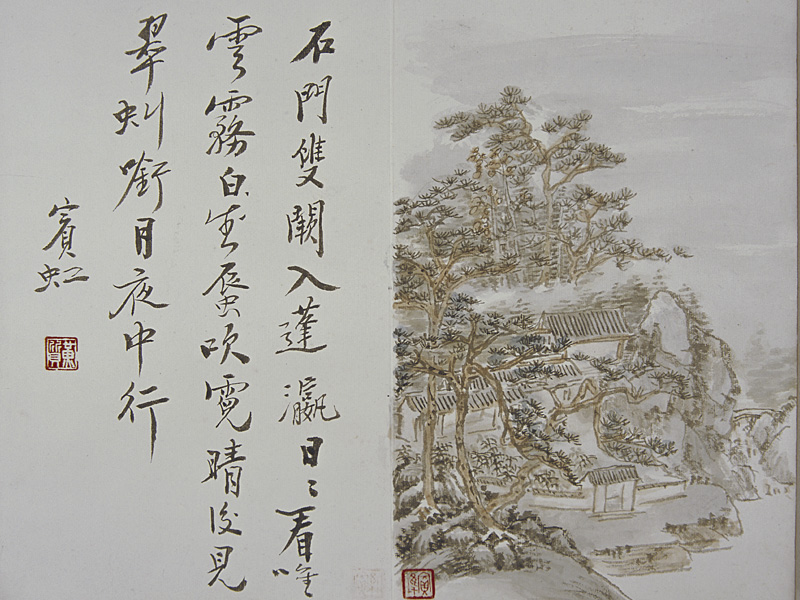 石門雙闕入蓬瀛日〻看唯
雲霧白生蜃吹霓晴後見
翠虬銜月夜中行
賓虹